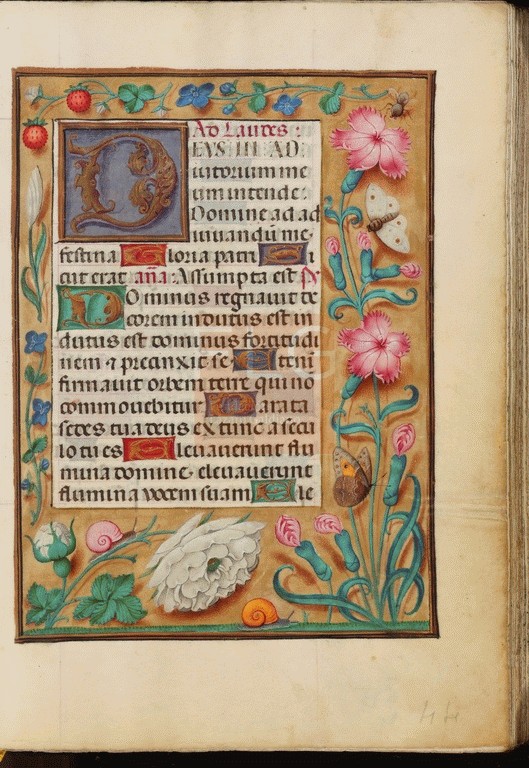 Ad Laudes:
DEVS IN AD
iutorium me
um intende:
Domine ad ad
iuuandũ me
festina Gloria patri Si
cut erat añã: Assumpta est ps
Dominus regnauit de
corem indutus est in
dutus est dominus fortitudi
nem & precinxit se Eteni
firmauit orbem terre qui no
commouebitur Parata
sedes tua deus ex tunc a secu
lo tu es Eleuauerunt flu
mina domine eleuauerunt
flumina uocem suam Ele
44